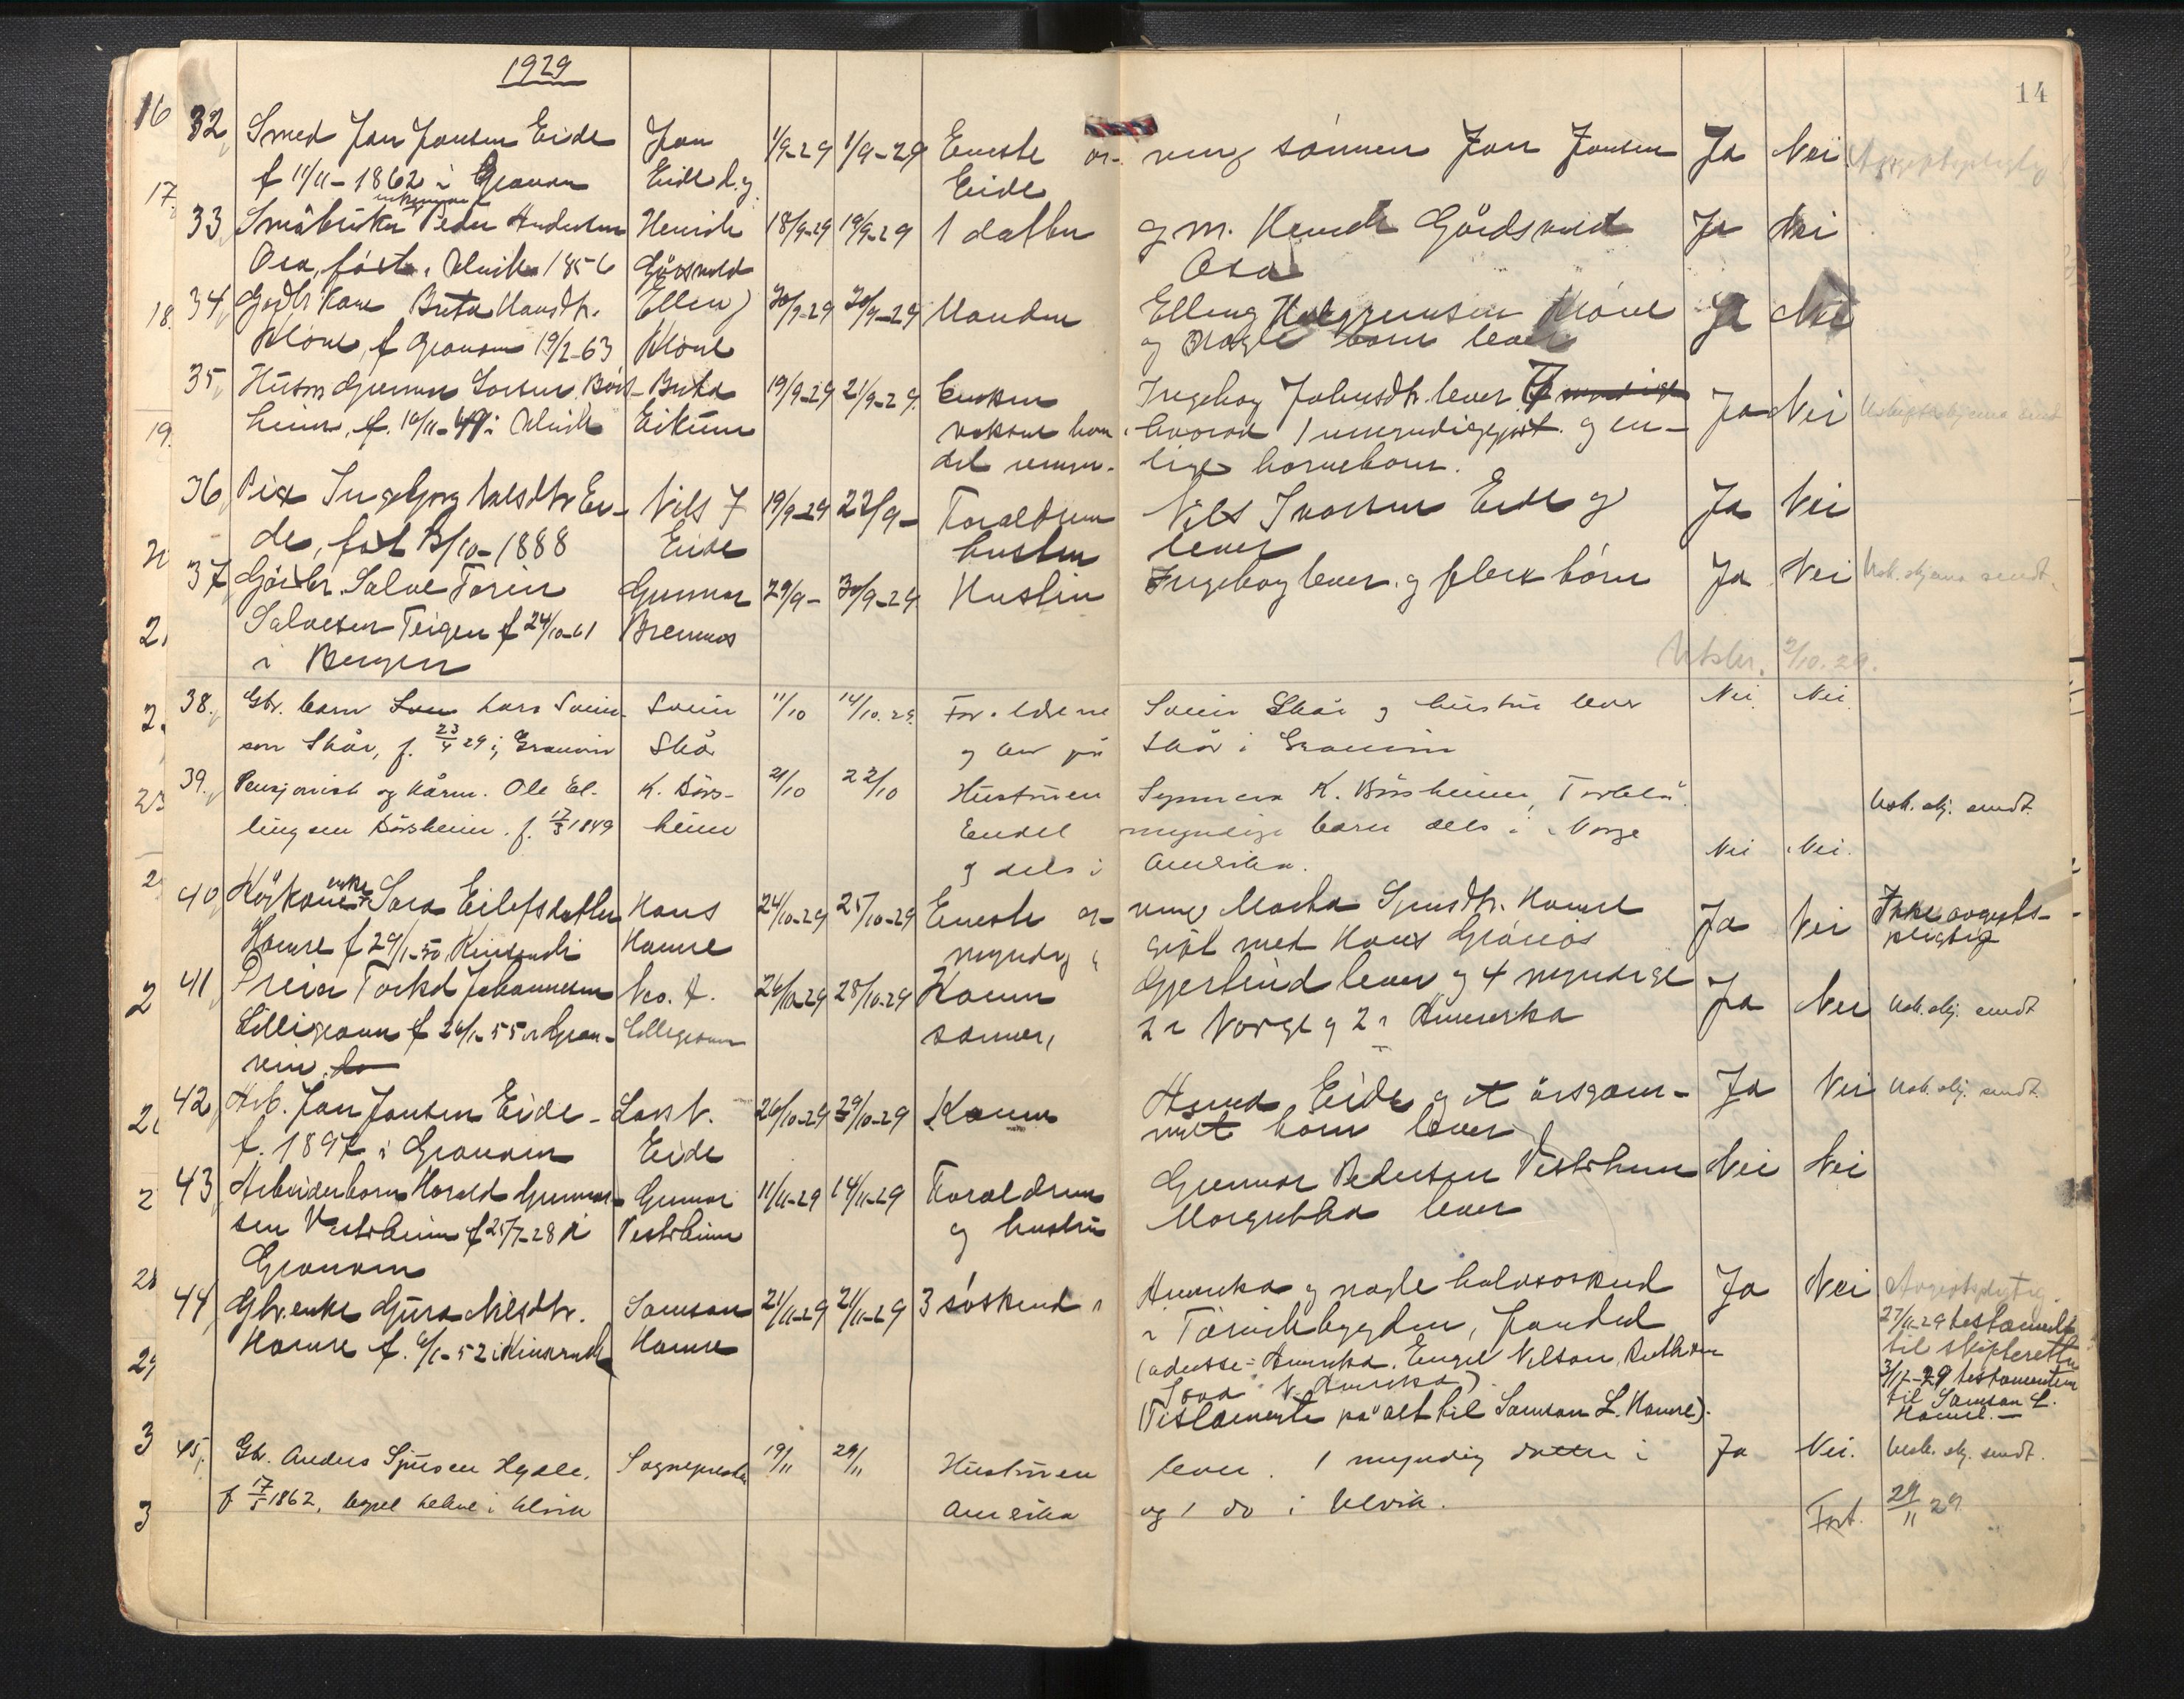 1929
14
32 Smed Jon Jonsen Eide Jon 1/9-29 1/9-29 Eneste ar- ving sønnen Jon Jonsen Ja Nei
f 11/11-1862 i Granvin Eide d.y. Eide
33 Småbruker Peder Andersen Henrik 18/9-29 19/9-29 1 datter g m. Henrik Gårdsvold Ja Nei
Osa, født i Ulvik 1856 Gårsvold Osa
34 Gpdbr Kone Brita Elling 20/9-29 20/9-29 Manden Elling Kløve Ja Nei
Kløve, f Granvin 19/2-63 Kløve og nogle barn lever
35 Husm Gunnar Larsen Børs- Brita 19/9-29 21/9-29 Enken Ingeborg Johnsdtr. lever Ja Nei
heim, f. 10/11-49 i Ulvik Eikum voksne barn hvorav 1 umyndiggjort og en-
del umyn- dige barnebarn.
36 Pike Ingebjørg Nilsdtr Ei- Nils I 19/9-29 23/9- Foreldrene Nils Ivarsen Eide og Ja Nei
de, født 13/10-1888 Eide hustru lever
37 Gårdbr. Salve Torin Gunnar 29/9- 30/9-29 Hustru Ingeborg lever og flere børn Ja Nei Usk. skjema sendt.
Salvesen Teigen f 24/10-61 Bremnes
i Bergen
Utskr. 2/10.29.
38. Gbr. barn Lars Svein- Svein 11/10 14/10.29. Foreldrene Svein Skår og hustru lever Nei. Nei.
son Skår, f. 23/4 29 i Granvin Skår og bur på Skår i Granvin
39. Pensjonist og kårm. Ole El- K. Børs- 21/10 22/10 Hustruen Synneva K. Børsheim, Torblå. Usk. skj. sendt.
lingsen Børsheim. f. 17/3 1849 heim Endel myndige barn dels i Norge Nei Nei.
og dels i Amerika.
40 Kårkone enke Sara Eilefsdatter Hans 24/10-29 25/10-29 Eneste ar- ving Marta Sjursdtr. Hamre Ja Nei Ikke avgifts-
Hamre f 29/1-50 Kinsarvik Hamre myndig og gift med Hans Grånås pligtig
41 Torkel Johannesen No. A. 26/10-29 28/10-29 Konen Gjertrud lever og 4 myndige Ja Nei Usk. skj. sendt
Lillegraven f 26/1-55 i Gran- Lillegraven sønner, 2 i Norge og 2 i Amerika
vin.
42 Arb. Jon Jonsen Eide Lars N. 26/10-29 29/10-29 Konen Eide og et årsgam- Ja Nei Usk. skj. sendt.
f. 1897 i Granvin Eide melt barn lever
43 Arbeiderbarn Harald Gunnar- Gunnar 11/11-29 14/11-29 Foreldrene Gunnar Pedersen Vestrheim Nei Nei
sen Vestrheim f 25/7-28 i Vestrheim og hustru Margretha lever
Granvin
44 Gbr. enke Gjura Nilsdtr. Samson 21/11-29 21/11-29 3 søskend i Amerika og nogle halvsøskend Ja Nei Avgiftspligtig.
Hamre f. 6/1-52 i Kinsarvik Hamre i Tørvikbygden, Jondal 27/11-29 testamente
(adresse: Amerika. Engel Nelson, Ruthven til skifteretten
Iova N. Amerika) 3/12-29 testamentet
Testamente på alt til Samson L. Hamre). til Samson L.
Hamre.—
45. Gbr. Anders Sjursen Hylle, Sognepresten 19/11 29/11 Hustruen lever. 1 myndig datter i Ja Nei. Usk. skj. sendt.
f 17/5 1862, i Ulvik Amerika og 1 do i Ulvik. Fort. 29/11 29.